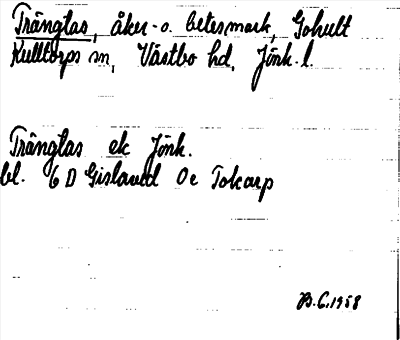 Trånglas, åker- o. betesmark, Gohult
Kulltorps sn, Västbo hd, Jönk. l.
Trånglas ek Jönk.
bl. 6 D Gislaved 0e Tokarp
B.G. 1958